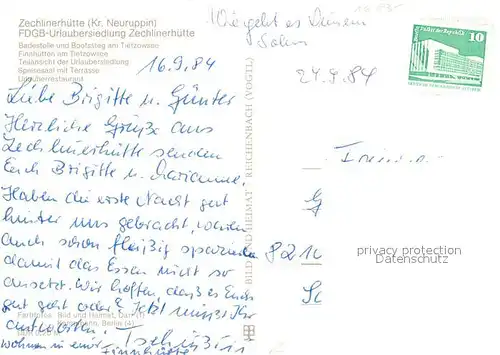 Zechlinerhütte (Kr. Neuruppin)
FDGB-Urlaubersiedlung Zechlinerhütte
Badestelle und Bootssteg am Tietzowsee
Finnhütten am Tietzowsee
Teilansicht der Urlaubersiedlung
Speisesaal mit Terrasse
Urlauberrestaurant
Wie geht es Deinem
Sohn
24.9.84
16.9.84
Liebe Brigitte u. Günter
Herzliche Grüße aus
Zechlinerhütte senden
Euch Brigitte u. Marianne.
Haben die erste Nacht gut
hinter uns gebracht, waren
auch schon fleißig spazieren
damit das Essen nicht so
ansetzt. Wir hoffen daß es Euch
gut geht oder? Jetzt müßt Ihr
antworten. Tschüß
wohnen in einer Finnhütte
BILD UND HEIMAT REICHENBACH (VOGTL)
10
Palast der Republik
DDR
8210
privacy protection
Datenschutz
Farbfotos: Bild und Heimat,
Berlin (4)